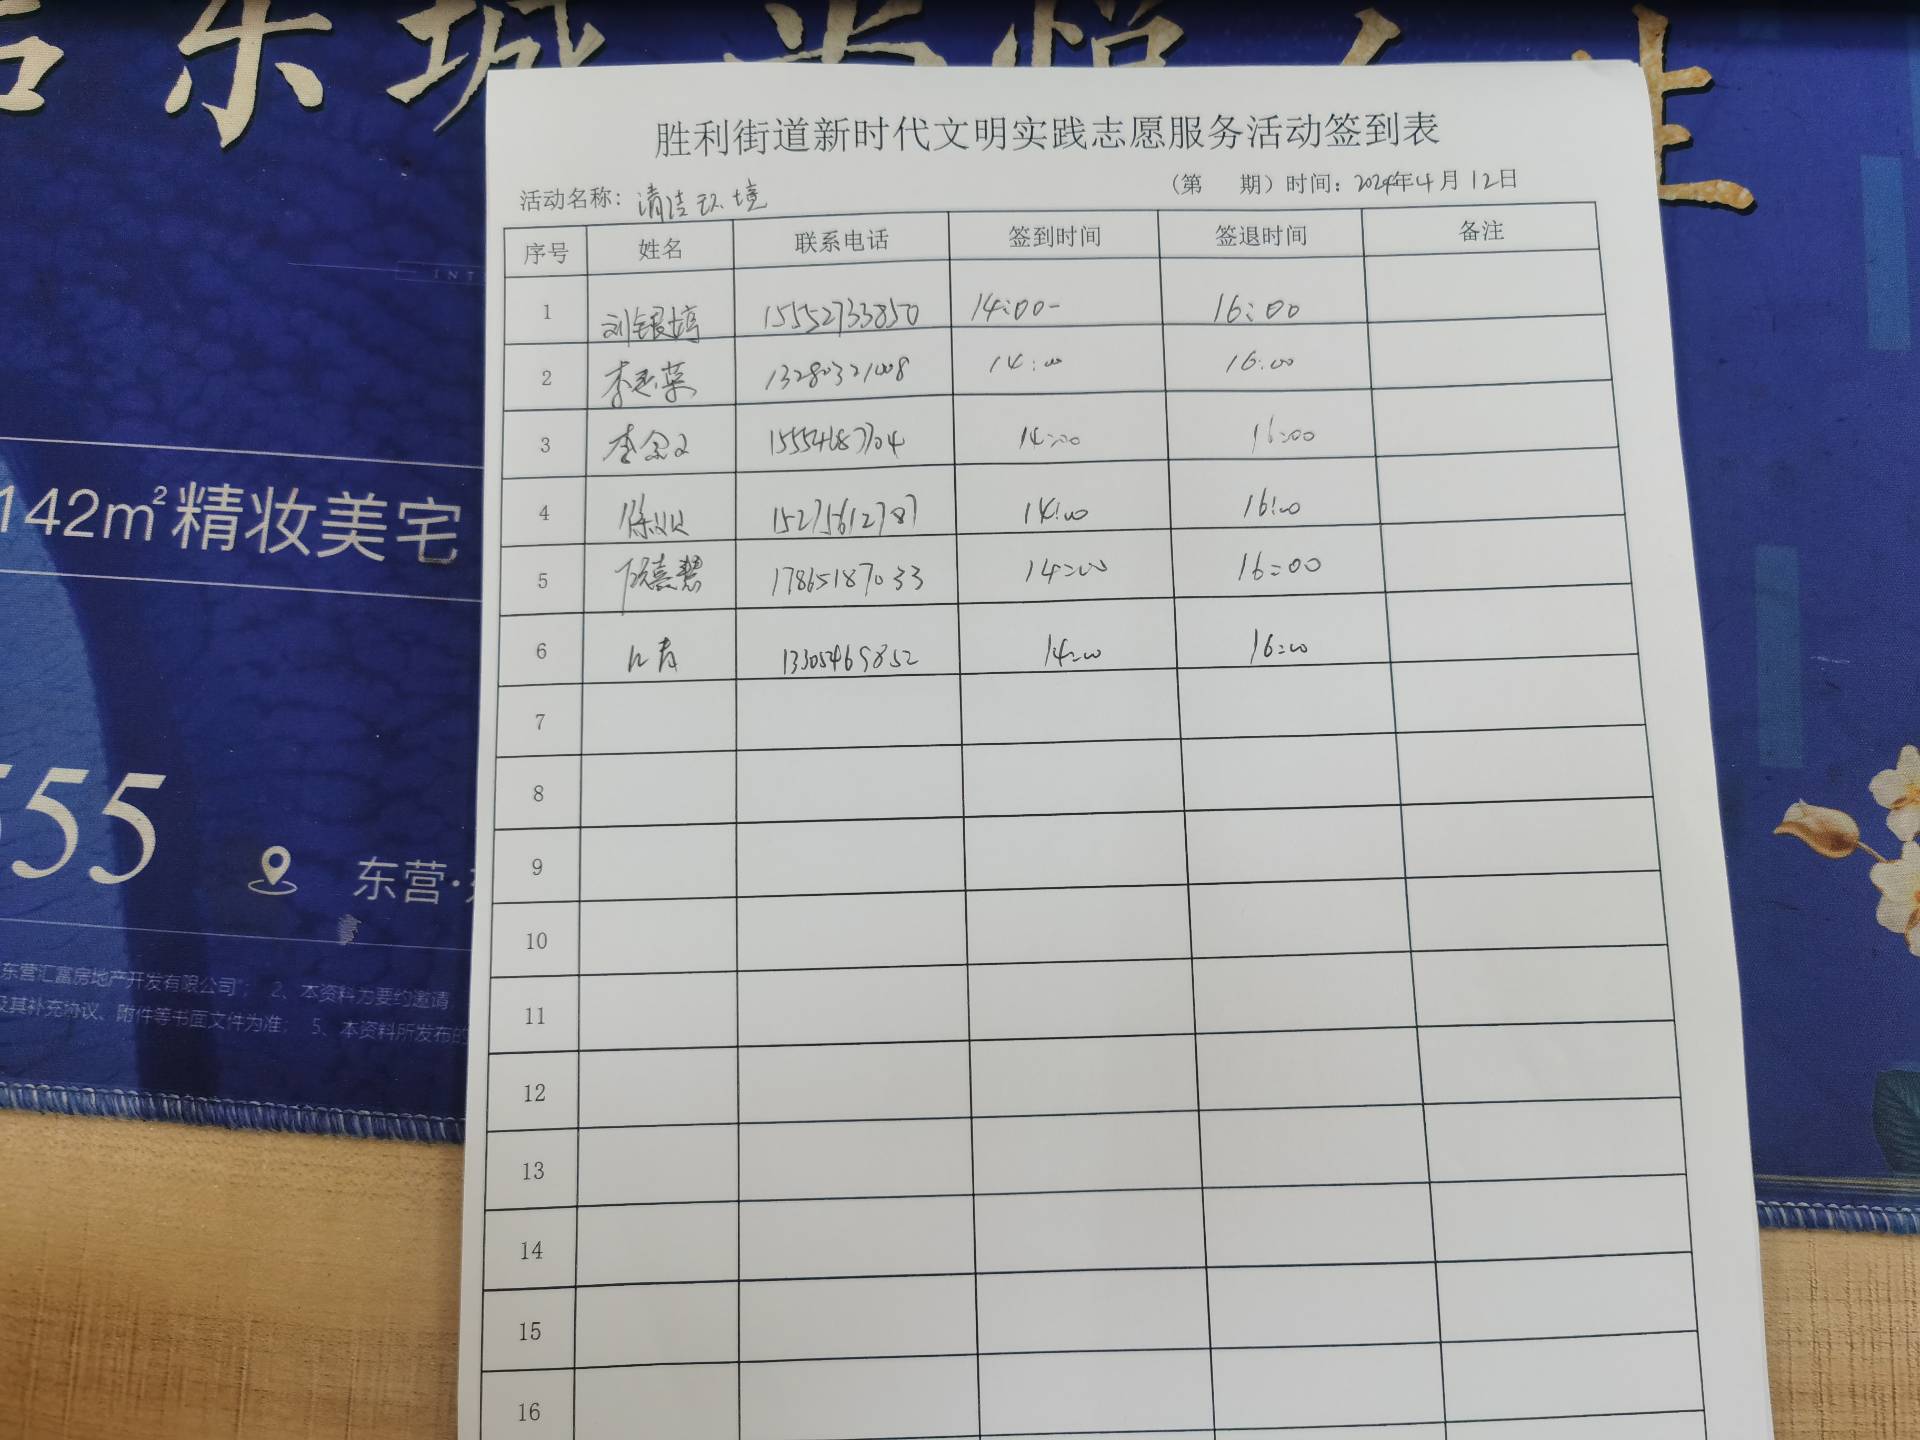 142m²精妆美宅
555
东营·
东营汇富房地产开发有限公司"; 2、本资料为要约邀请
及其补充协议、附件等书面文件为准; 5、本资料所发布的
胜利街道新时代文明实践志愿服务活动签到表
活动名称：清洁环境 （第 期）时间：2024年4月12日
序号 姓名 联系电话 签到时间 签退时间 备注
1 刘银婷 15552733850 14:00- 16:00
2 13280321008 14:00 16:00
3 14:00 16:00
4 15275612787 14:00 16:00
5 17865187033 14:00 16:00
6 13305469852 14:00 16:00
7
8
9
10
11
12
13
14
15
16